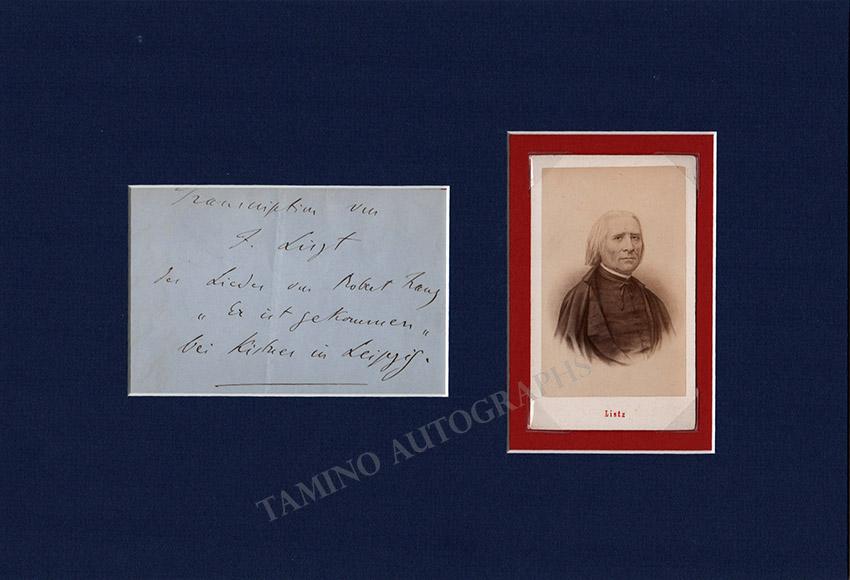 Transcription von
F. Liszt
des Liedes von Robert Franz
„Er ist gekommen„
bei Kistner in Leipzig.
Listz
TAMINO AUTOGRAPHS